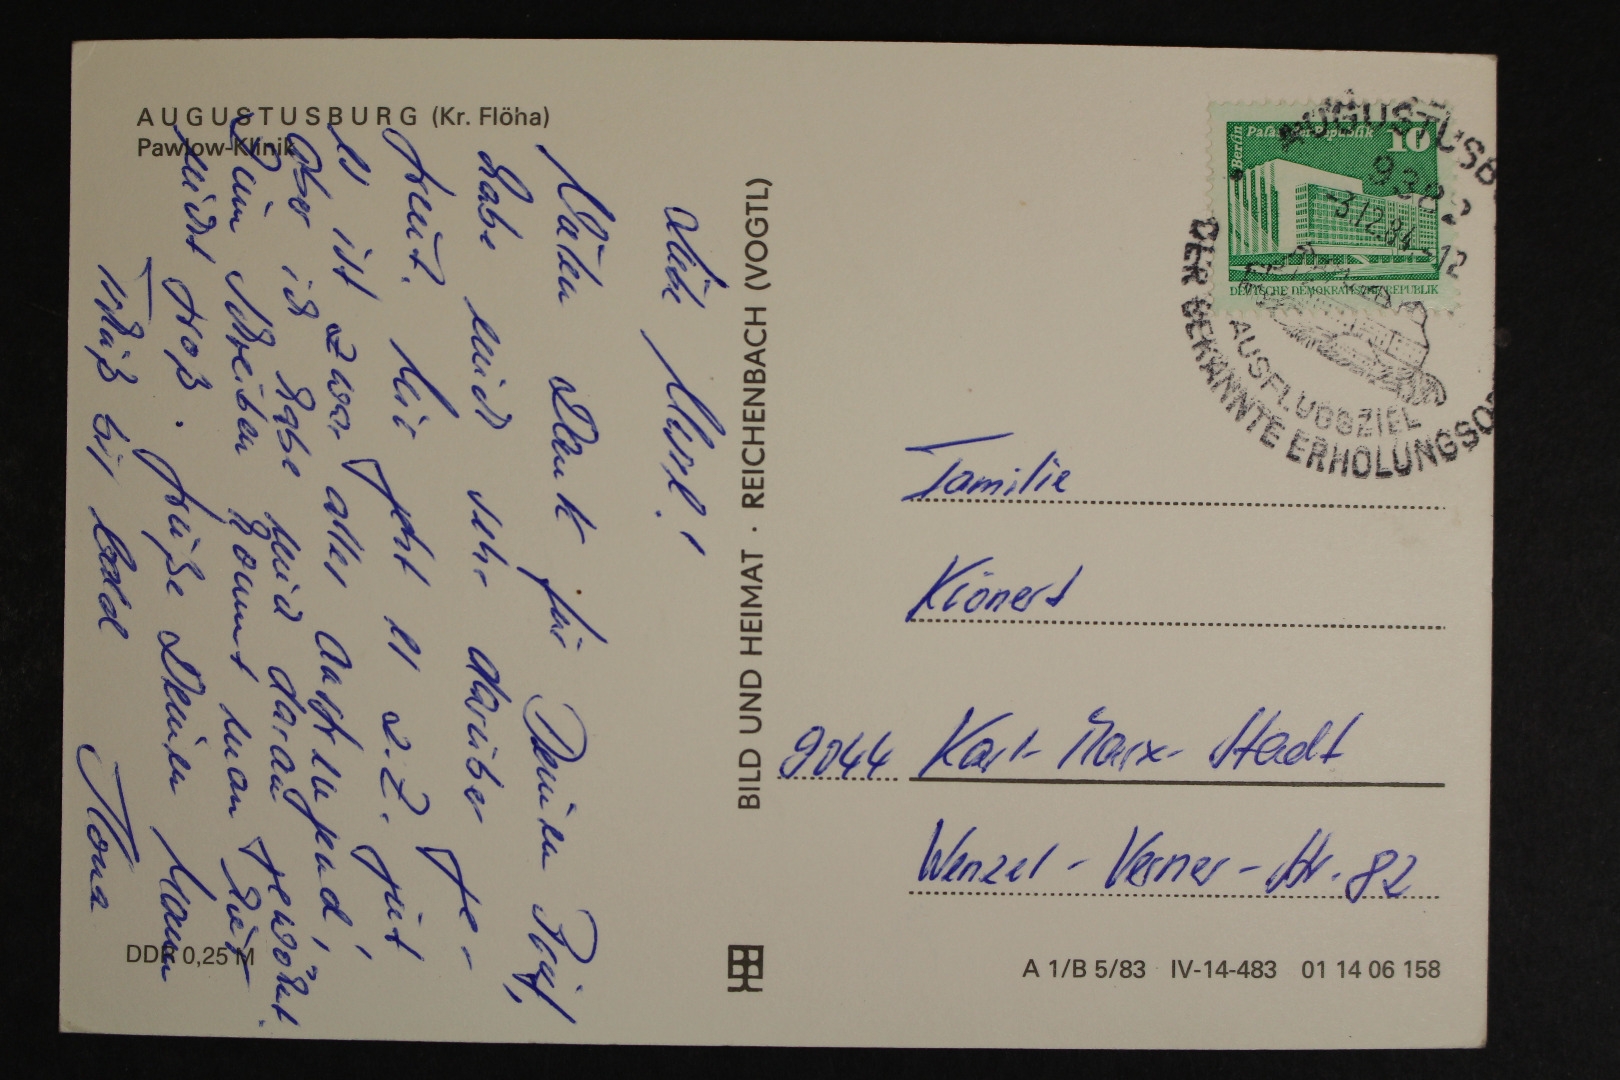 AUGUSTUSBURG (Kr. Flöha)
Pawlow-Klinik
Liebe Ursel!
Vielen Dank für Deinen Brief,
habe mich sehr darüber ge-
freut. Mir geht es z.Z. gut
es ist zwar alles anstrengend,
aber ich habe mich daran gewöhnt.
Zum Schreiben kommt man hier
nicht groß. Grüße Deinen Mann
Tschüß bis bald Ilona
DDR 0,25 M
BILD UND HEIMAT · REICHENBACH (VOGTL)
Berlin Palast der Republik 10
DEUTSCHE DEMOKRATISCHE REPUBLIK
AUGUSTUSB
9382
-3.12.84-12
AUSFLUGSZIEL
DER BEKANNTE ERHOLUNGSOR
Familie
Könert
9044 Karl-Marx-Stadt
Wenzel-Verner-Str. 82
A 1/B 5/83 IV-14-483 01 14 06 158